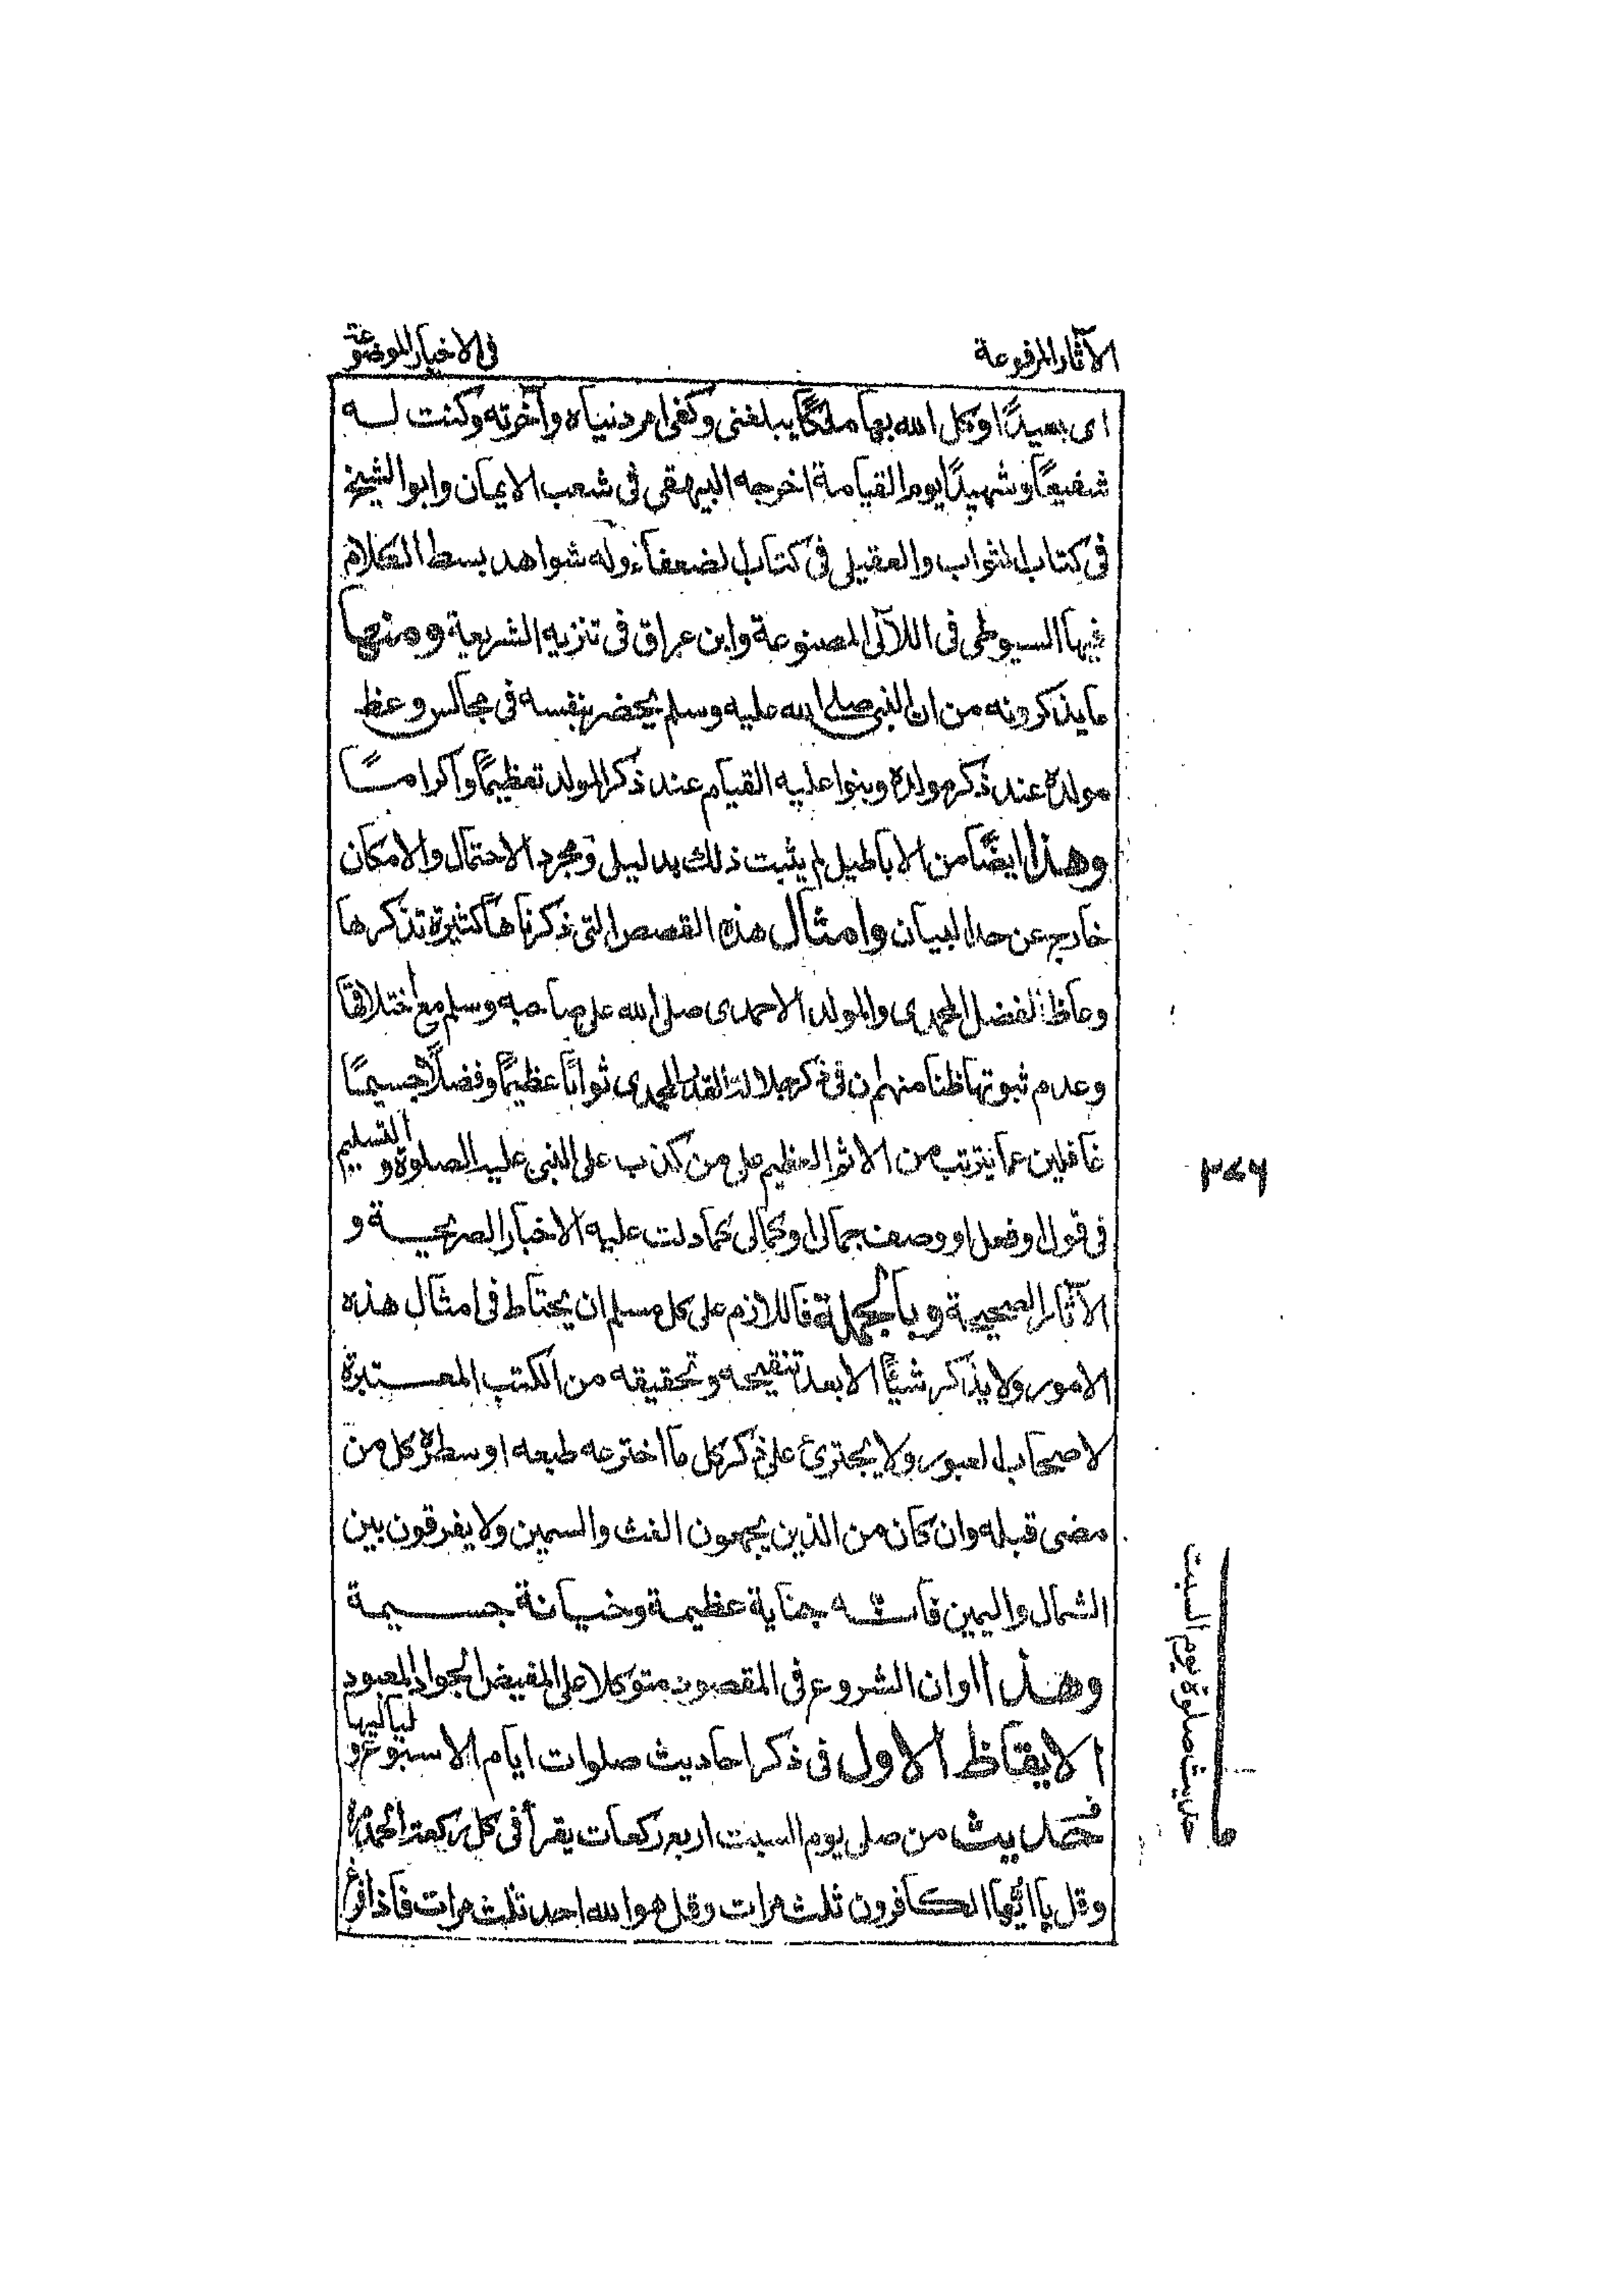 الآثار المرفوعة
فى الاخبار الموضوعة
اى بعيدًا وكل الله بها ملكًا يبلغنى وكفى امر دنياه وآخرته وكنت لـــه
شفيعًا وشهيدًا يوم القيامة اخرجه البيهقى فى شعب الايمان وابو الشيخ
فى كتاب الثواب والعقيلى فى كتاب الضعفاء وله شواهد بسط الكلام
فيها السيوطى فى اللآلى المصنوعة وابن عراق فى تنزيه الشريعة ومنها
ما يذكرونه من ان النبى صلى الله عليه وسلم يحضر بنفسه فى مجالس وعظ
مولده عند ذكر مولده وبنوا عليه القيام عند ذكر المولد تعظيمًا واكرامـــًا
وهذا ايضًا من الاباطيل لم يثبت ذلك بدليل ومجرد الاحتمال والامكان
خارج عن حد البيان وامثال هذه القصص التى ذكرناها كثيرة تذكرها
وعاظ الفضل المحمدى والمولد الاحمدى صلى الله على صاحبه وسلم مع اختلاقها
وعدم ثبوتها ظنا منهم ان فى ذكر جلالة القدر المحمدى ثوابًا عظيمًا وفضلًا جسيمًا
غافلين عما يترتب من الاثم العظيم على من كذب على النبى عليه الصلوة والتسليم
فى قول او فعل او وصف جمالى او كمالى كما دلت عليه الاخبار الصريحـــة و
الآثار الصحيحة وبالجملة فاللازم على كل مسلم ان يحتاط فى امثال هذه
الامور ولا يذكر شيئًا الا بعد تنقيحه وتحقيقه من الكتب المعـــتبرة
لاصحاب العبور ولا يجترئ على ذكر كل ما اخترعه طبعه او سطره كل من
مضى قبله وان كان من الذين يجمعون الغث والسمين ولا يفرقون بين
الشمال واليمين فانـــه جناية عظيمة وخيانة جســـيمة
وهذا اوان الشروع فى المقصود متوكلا على المفيض الجواد المعبود
الايقاظ الاول فى ذكر احاديث صلوات ايام الاسبوع ولياليها
فحديث من صلى يوم السبت اربع ركعات يقرأ فى كل ركعة الحمد مرة
وقل يا ايها الكافرون ثلث مرات وقل هو الله احد ثلث مرات فاذا فرغ
حديث صلوة يوم السبت